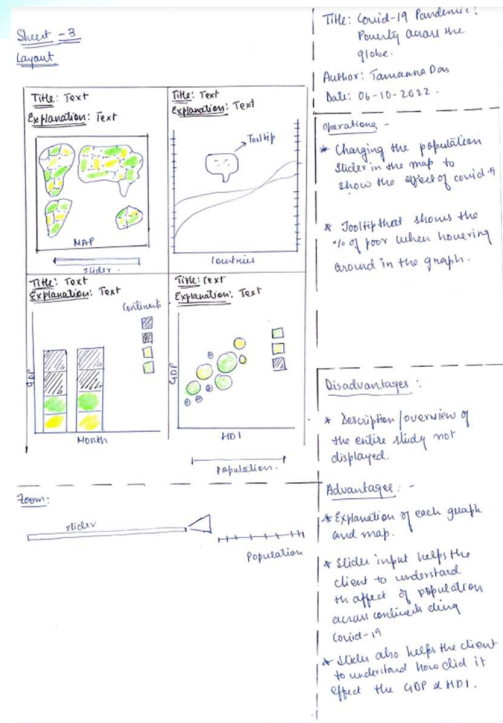 Sheet -3
Layout
Title: Text
Explanation: Text
MAP
slider.
Title: Text
Explanation: Text
Tooltip
Countries
Title: Text
Explanation: Text
Continent
GDP
Month
Title: Text
Explanation: Text
GDP
HDI
Population.
Zoom:
slider
Population
Title: Covid-19 Pandemic:
Poverty across the
globe.
Author: Tamanna Das
Date: 06-10-2022.
Operations -
* Changing the population
slider in the map to
show the effect of covid-19
* Tooltip that shows the
% of poor when hovering
around in the graph.
Disadvantages:
* Description/overview of
the entire study not
displayed.
Advantages: -
* Explanation of each graph
and map.
* Slider input helps the
client to understand
th affect of population
across continents
Covid-19
* Slider also helps the client
to understand how did it
effect the GDP & HDI.